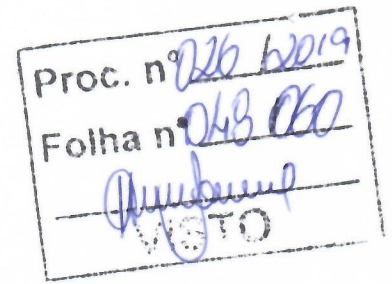 Proc. nº 026/2019
Folha nº 048 060
VISTO